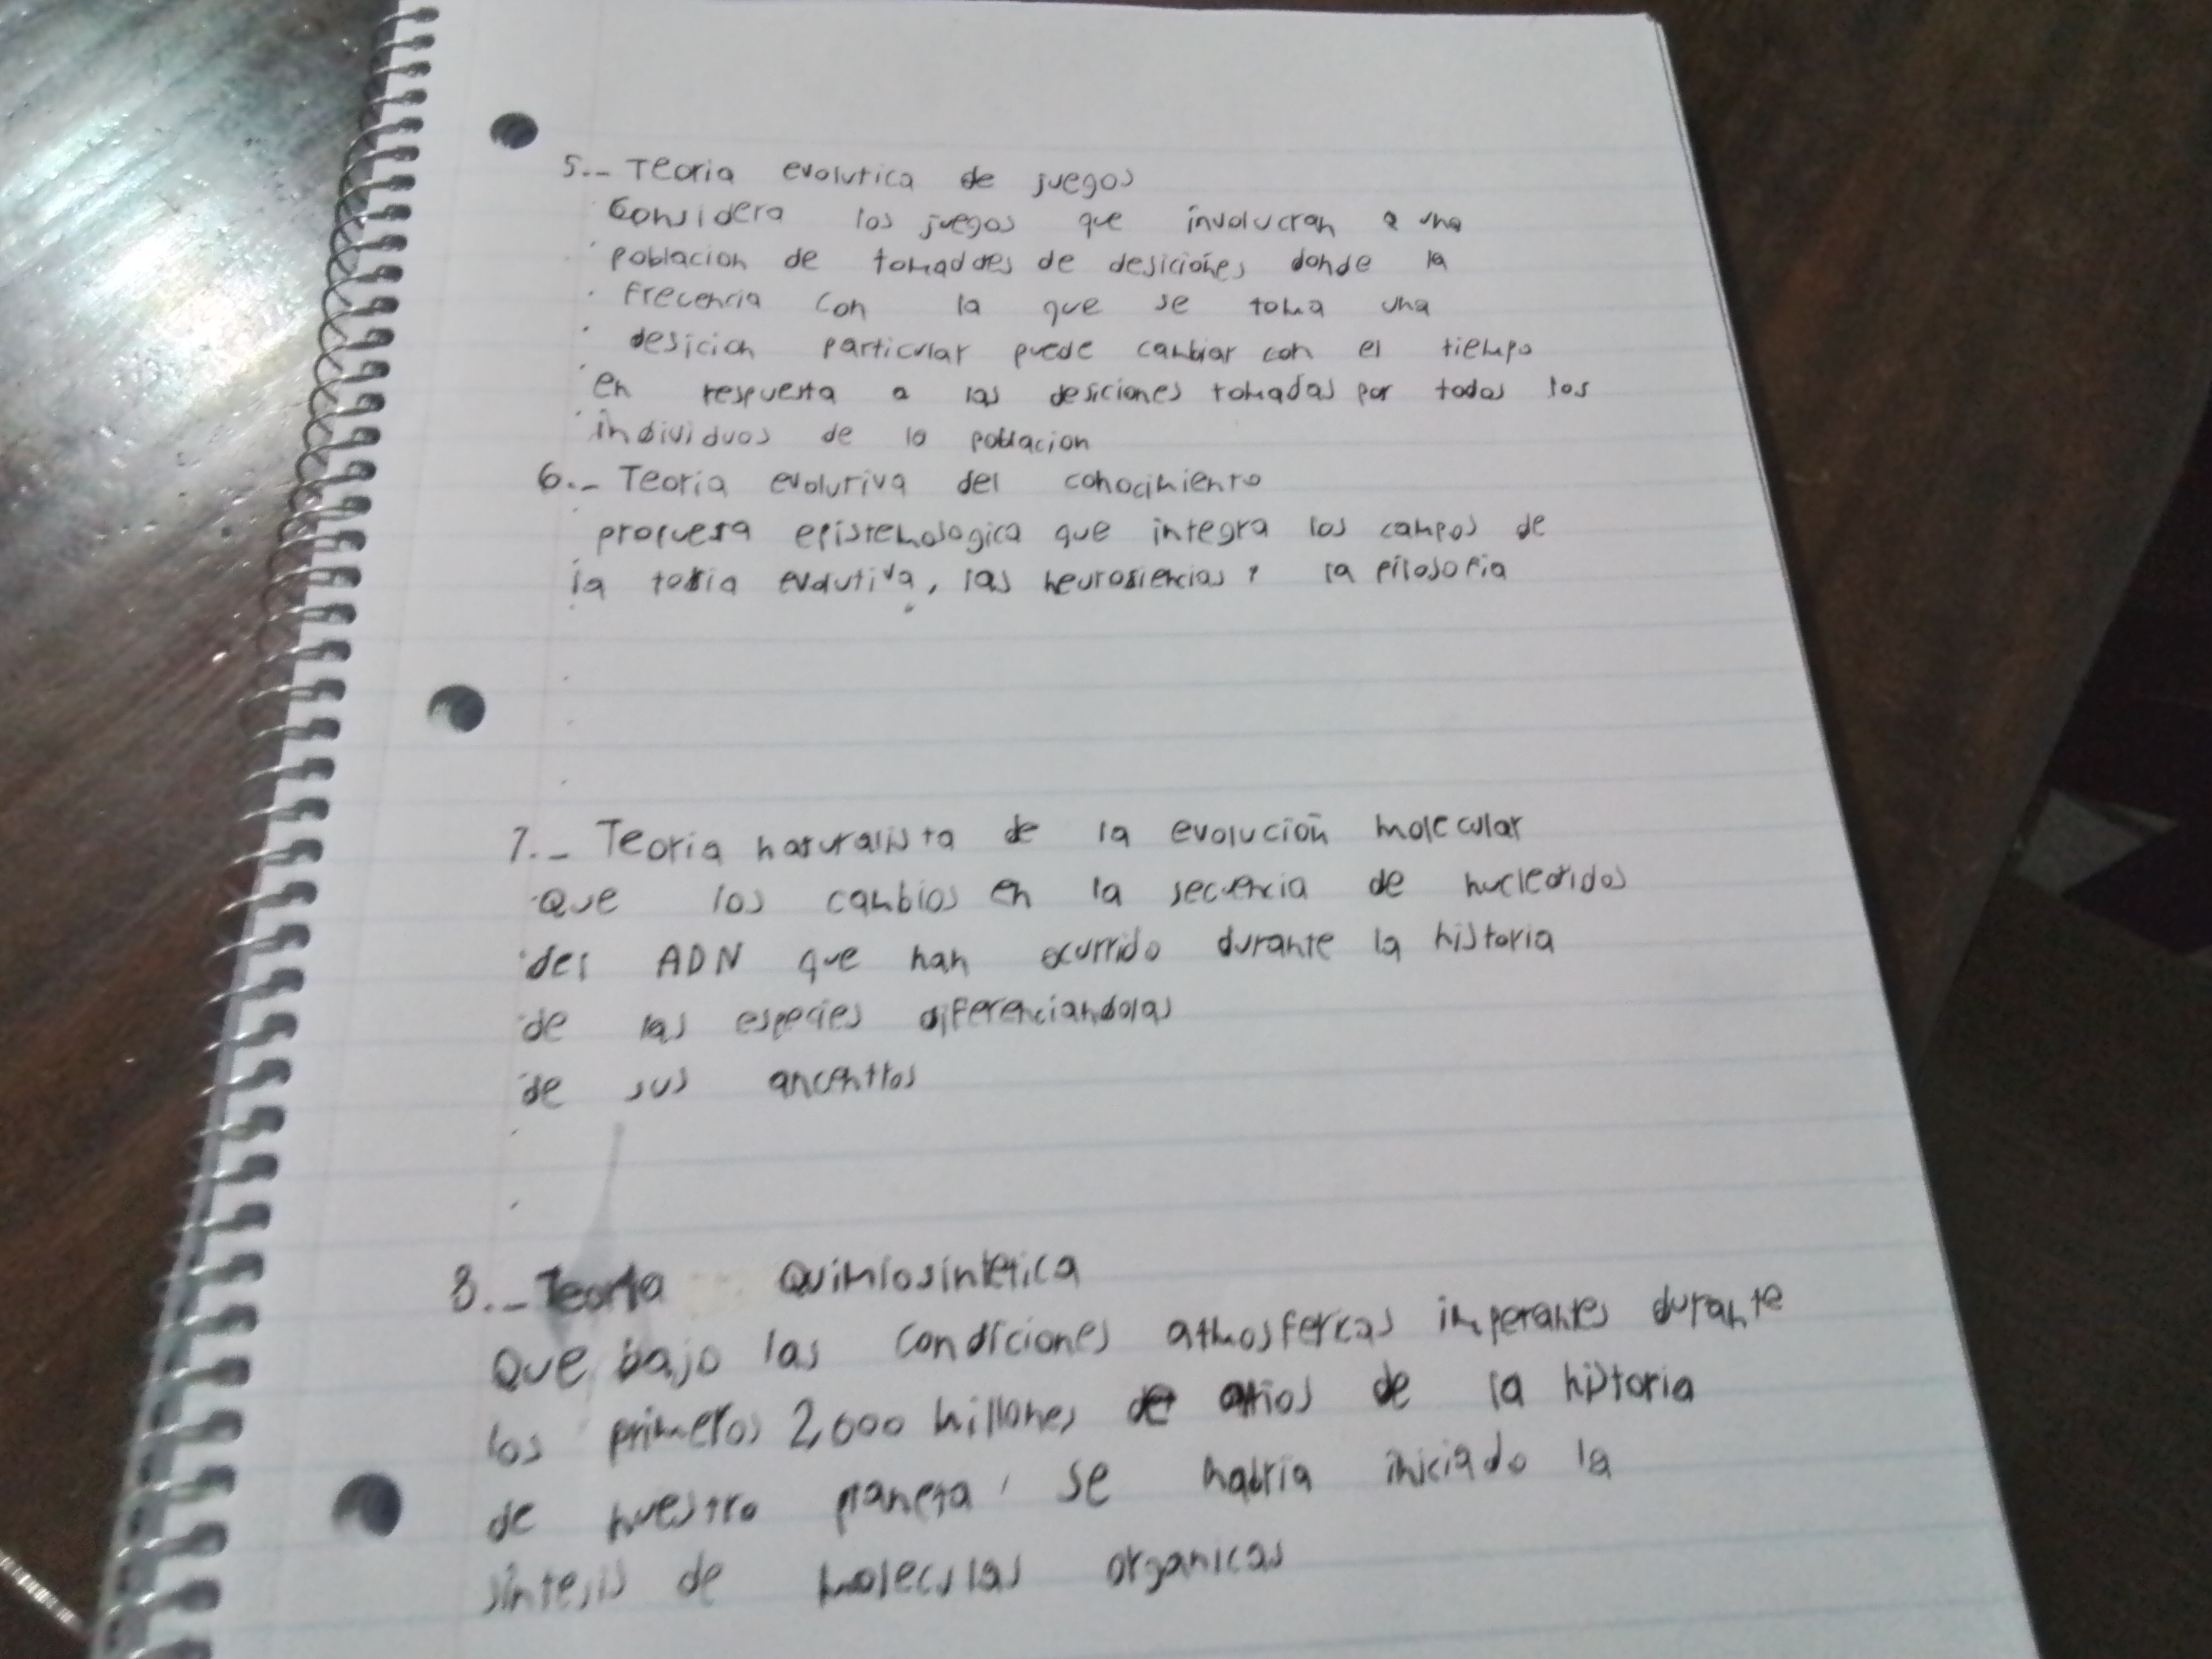 5.- Teoria evolutica de juegos
Considera los juegos que involucran a una
poblacion de tomaddes de desiciónes donde la
frecencia con la que se toma una
desicion particular puede cambiar con el tiempo
en respuesta a las desiciones tomadas por todos los
individuos de la poblacion
6.- Teoria evolutiva del conocimiento
propuesa epistemologica que integra los campos de
la toria evolutiva, las neurosiencias y la filosofia
7.- Teoria naturalista de la evolución molecular
Que los cambios en la secuencia de nucleotidos
del ADN que han ocurrido durante la historia
de las especies diferenciandolas
de sus ancentros
8.- Teoria Quimiosintetica
Que bajo las condiciones atmosfericas imperantes durante
los primeros 2,000 millones de años de la historia
de nuestro planeta, se habria iniciado la
sintesis de moleculas organicas